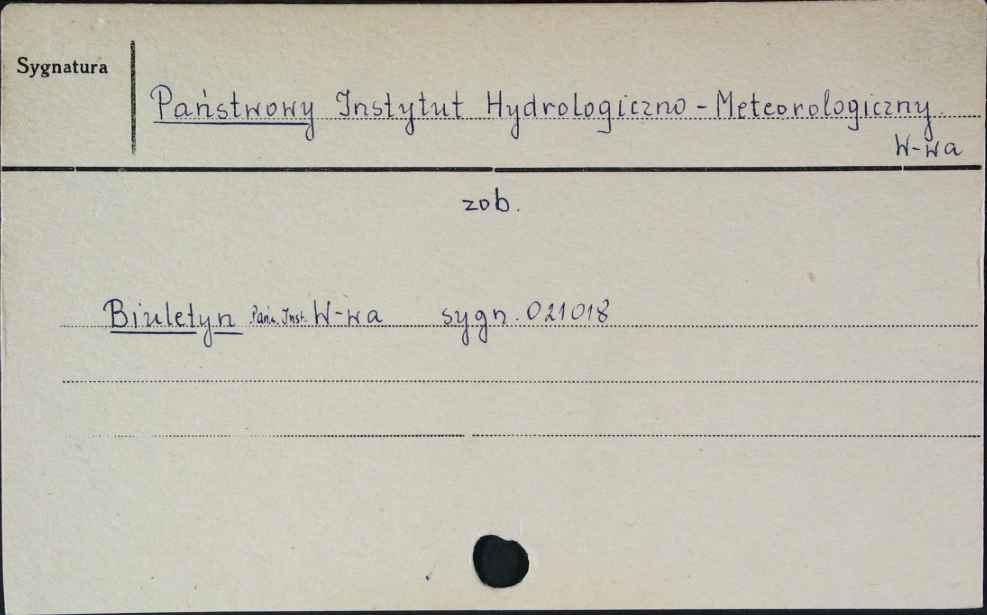 Sygnatura
Państwowy Instytut Hydrologiczno - Meteorologiczny
W-wa
zob.
Biuletyn Państ. Inst. W-wa sygn. 021018